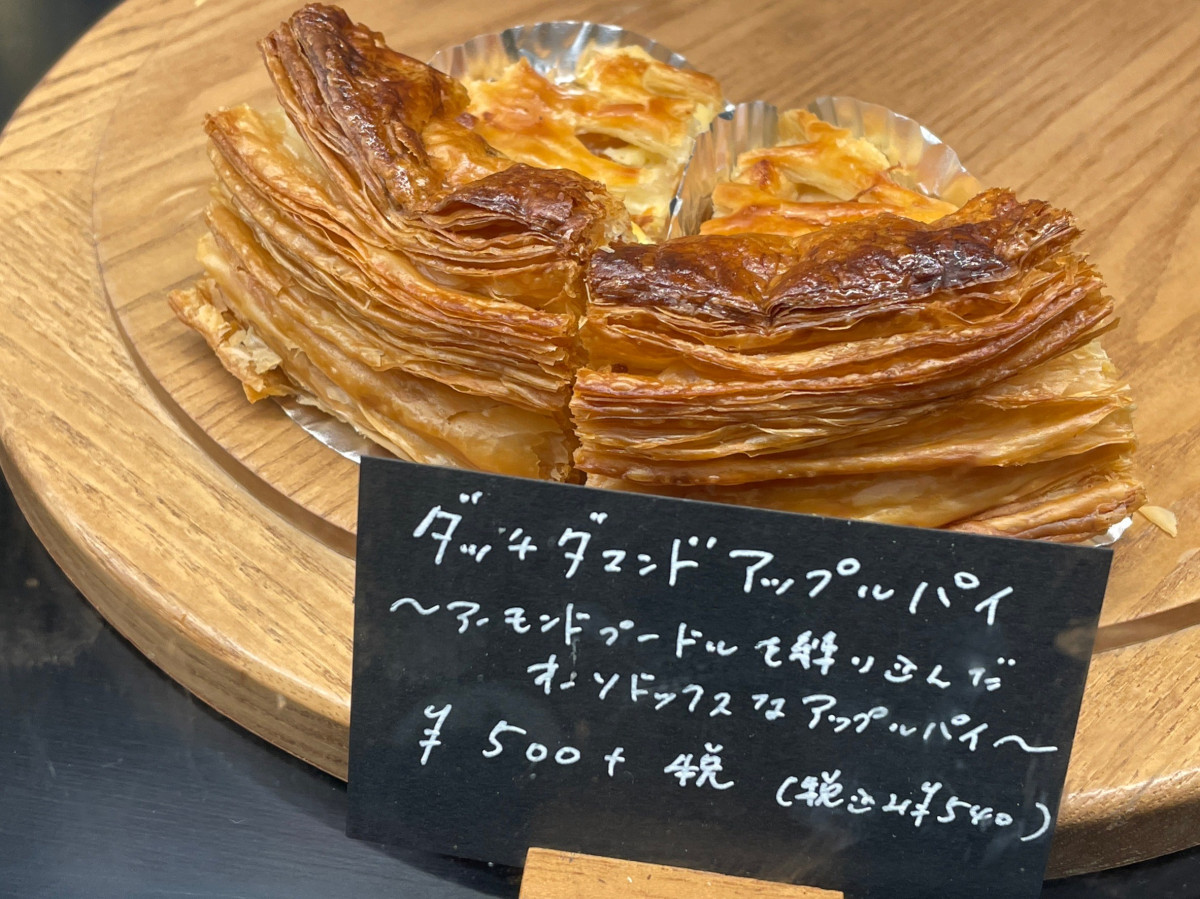 ダッチダマンドアップルパイ
～アーモンドプードルを練り込んだ
オーソドックスなアップルパイ～
¥500+税 (税込み¥540)